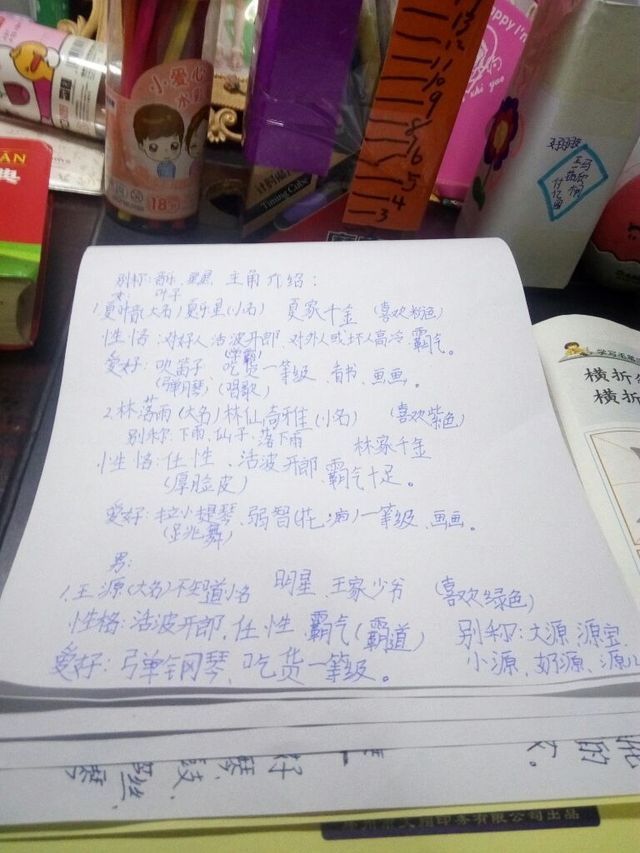 小爱心
水
18
13
12
11
10
9
8
6
5
4
3
Happy I'm
Timing Cube
别称: 音乐、星星 主角介绍:
夏家千金 (喜欢粉色)
性恪: 对好人活波开郎、对外人或坏人高冷、霸气。
(学霸)
爱好: 吹笛子 吃货一等级、看书、画画。
(弹钢琴) (唱歌)
2.林落雨(大名) (小名) (喜欢紫色)
别称: 下雨、仙子、落下雨 林家千金
性恪: 任性、活波开郎、霸气十足。
(厚脸皮)
爱好: 拉小提琴、弱智(花痴)一等级、画画。
(跳舞)
男:
1.王源(大名)不知道小名 明星、王家少爷 (喜欢绿色)
性格: 活波开郎、任性、霸气(霸道) 别称: 大源、源宝、
爱好: 弹钢琴、吃货一等级。 小源、
横折
横折
有限公司出品